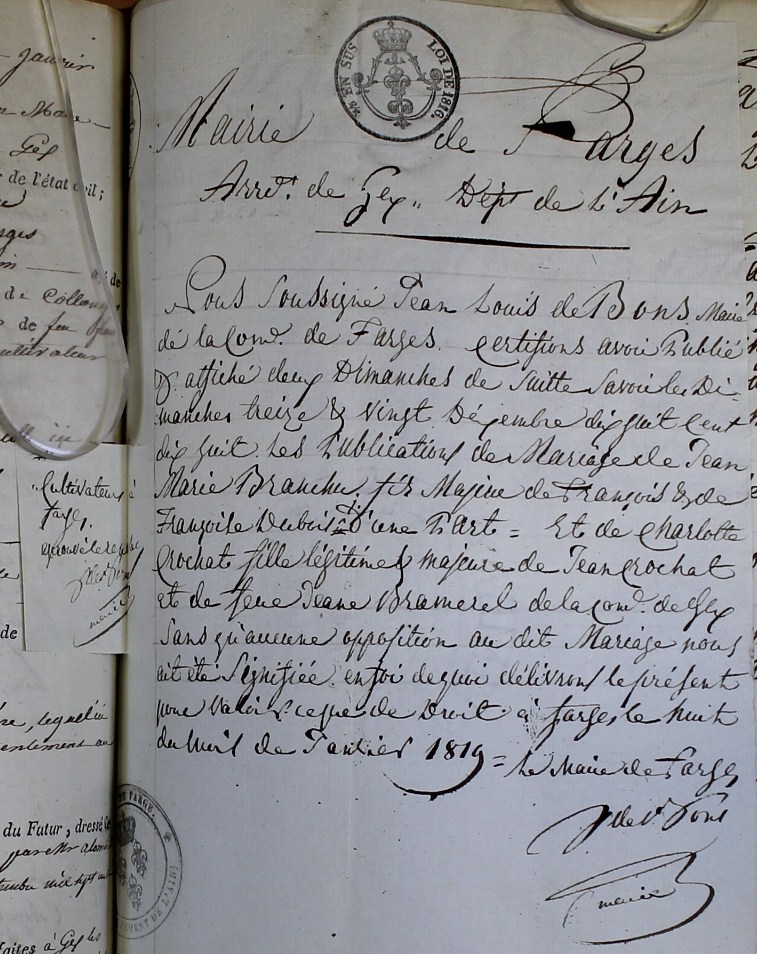 EN SUS
LOI DE 1816.
Mairie de Farges
Arrt. de Gex. Dépt de L'Ain
Nous Soussigné Jean Louis de Bons Maire
dé la Com.e de Farges. Certifions avoir Publié
& affiché deux Dimanches de Suitte Savoir les Di-
manches treize & Vingt Décembre dix huit Cent
dix huit. Les Publications de Mariage de Jean
Marie Branchu, fils Majeur de François & de
Françoise Dubois = D'une Part = Et de Charlotte
Crochat fille légitime & majeure de Jean Crochat
et de feue Jeane Bramerel de la Com.e de Gex
Sans qu'aucune opposition au dit Mariage nous
ait été Signifiée. en foi de quoi délivrons le présent
pour Valoir ce que de Droit à farges le huit
du Mois de Janvier 1819 = Le Maire de Farges
maire
Janvier
Maire
Gex
de l'état civil;
de Collonges
de feu
cultivateur
Cultivateur à
farges.
maire
de
lequel
entement au
du Futur, dressé
par Mr
faites à Gex les